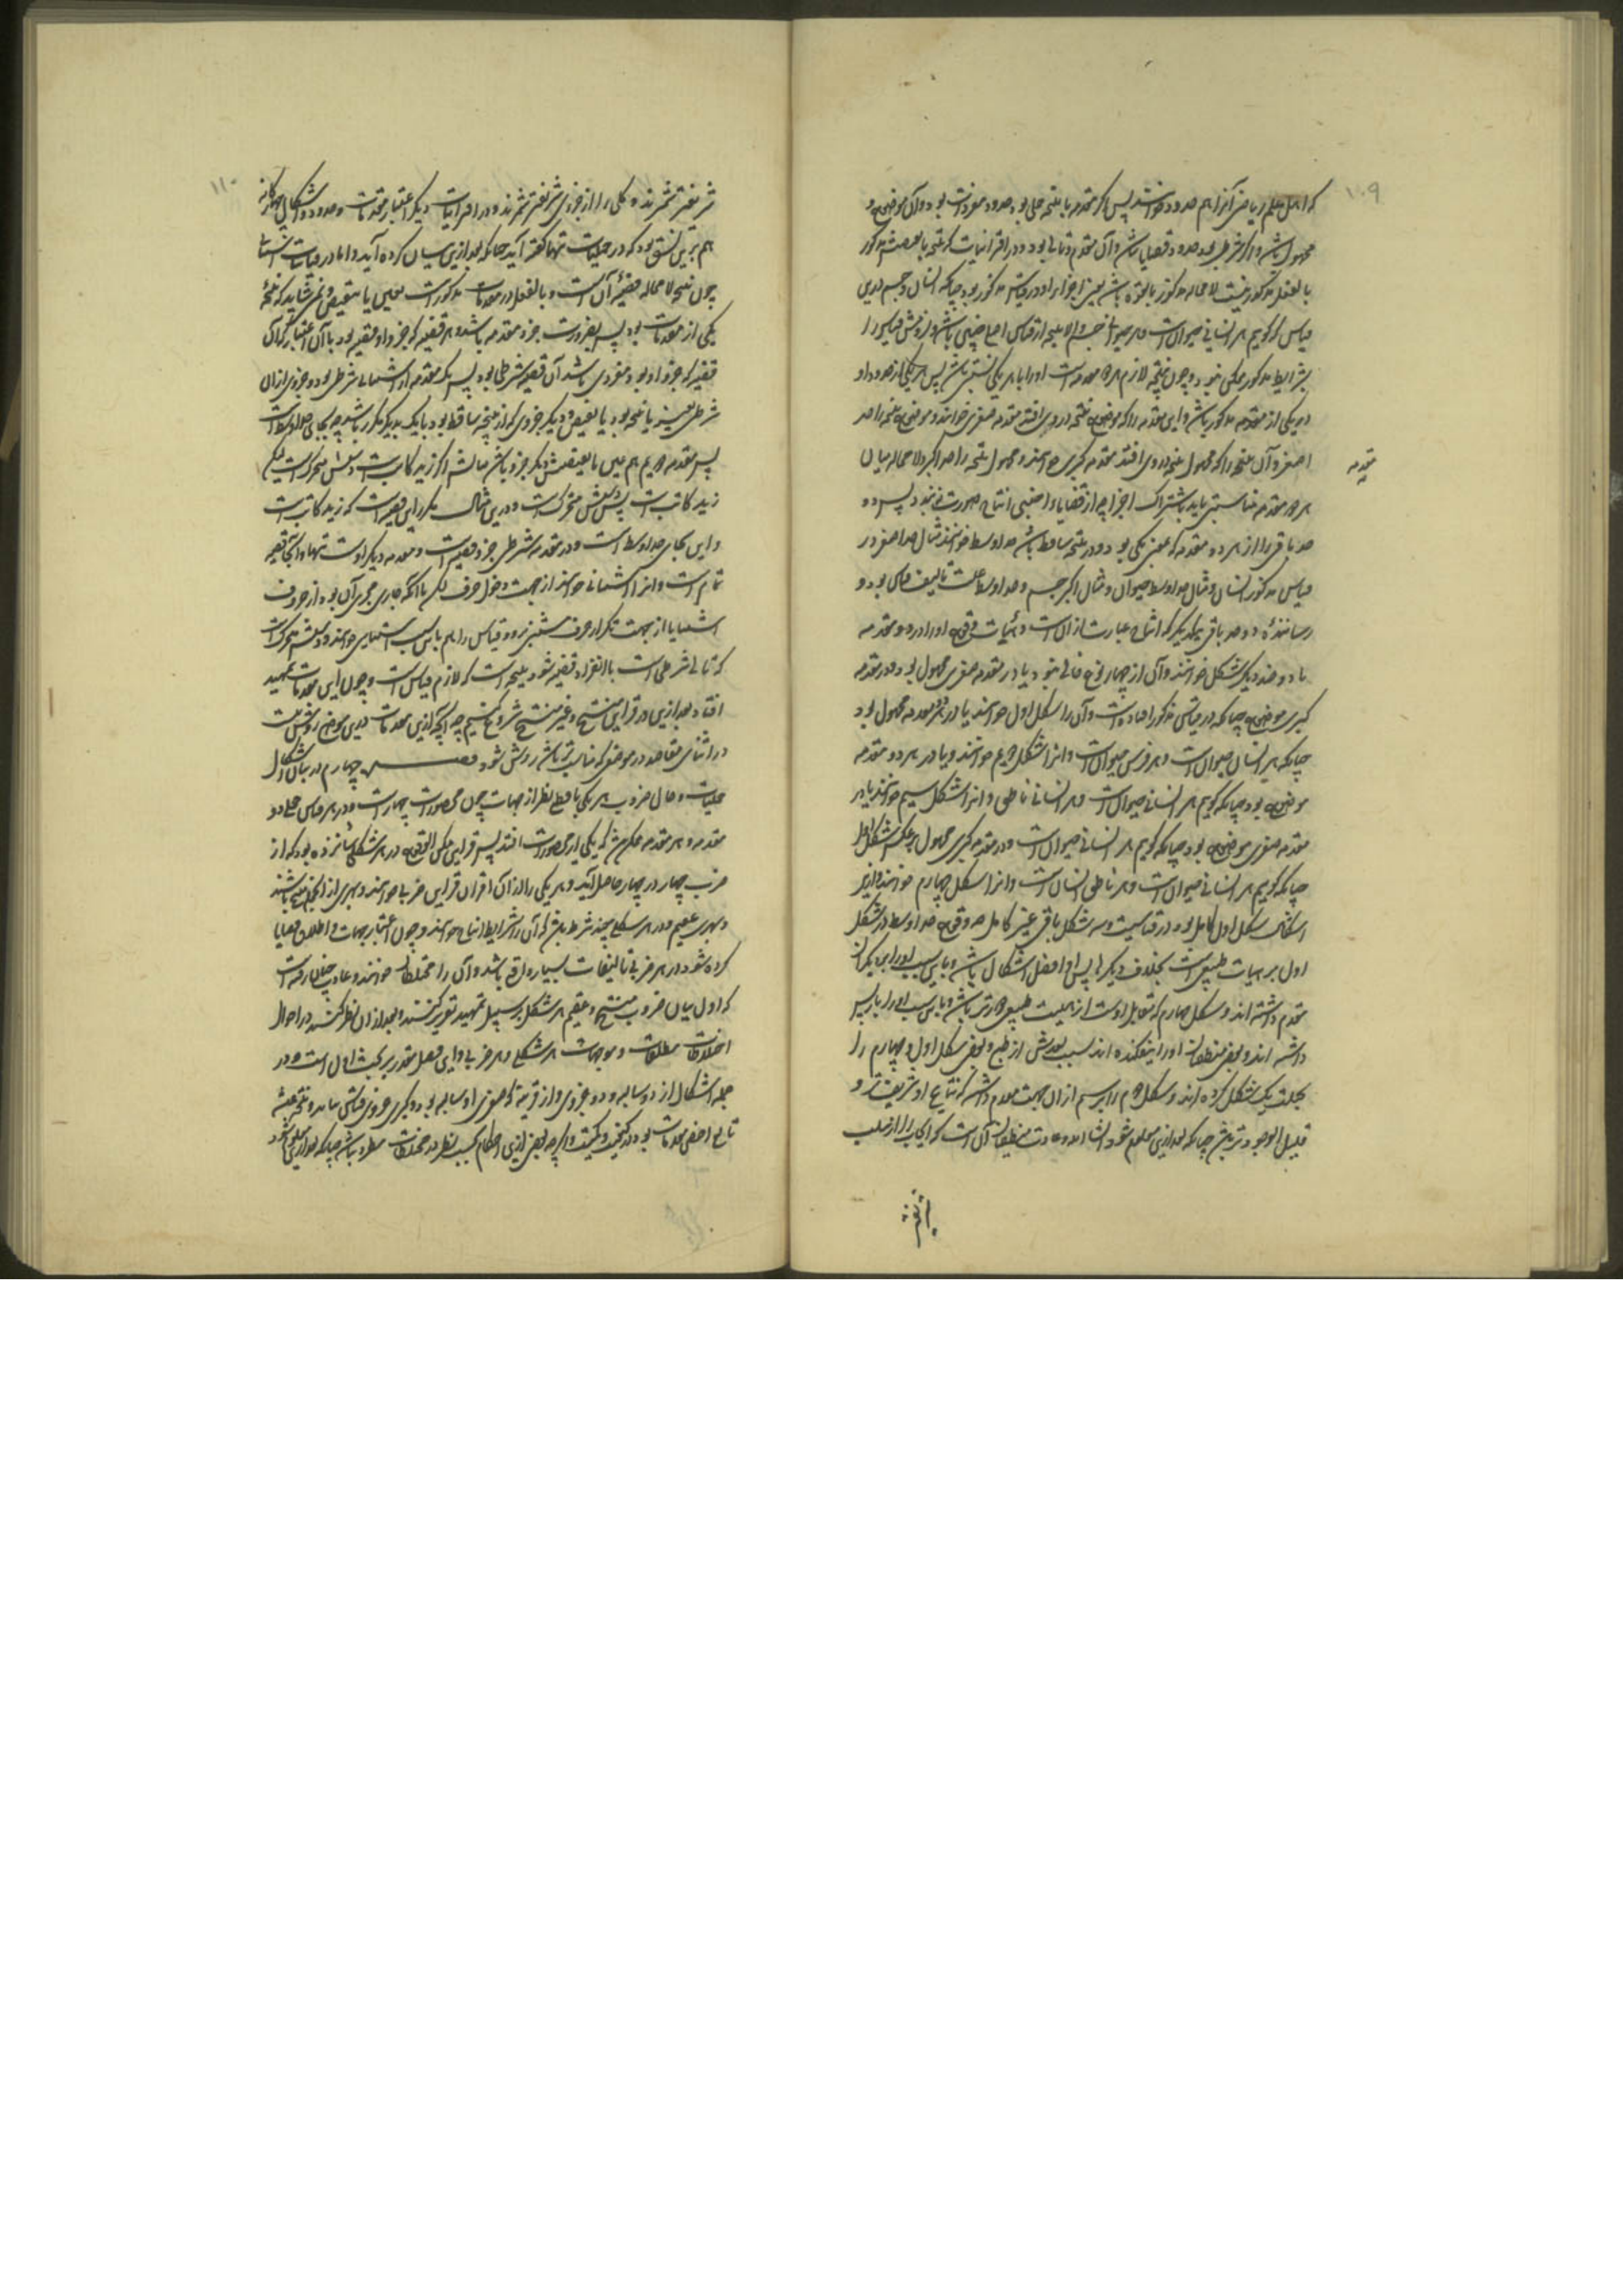 ۱۰۹
که اهل علم ریاضی آنرا هم حدود خوانند پس اگر مقدمه یا نتیجه حملی بود حدود مفردات بود و آن موضوع و
محمول باشد و اگر شرطی بود حدود قضایا باشد و آن مقدم و تالی بود و در اقترانیات که نتیجه یا نقیضش مذکور
بالفعل مذکور نیست لا محاله مذکور بالقوه باشد یعنی اجزاء او در قیاس مذکور بود چنانکه انسان و جسم درین
قیاس که گوییم هر انسانی حیوانست و هر حیوانی جسم والا نتیجه از قیاس اجنبی باشد و
بشرایط مذکور ممکن نبود و چون نتیجه لازم هر دو مقدمه است او را با هر یکی نسبتی باشد پس هر یکی از حدود او
در یکی از مقدمه مذکور باشد و این مقدمه را که موضوع نتیجه در وی افتد مقدمه صغری خوانند و موضوع نتیجه را حد
اصغر و آن مقدمه را که محمول نتیجه در وی افتد مقدمه کبری خوانند و محمول نتیجه را حد اکبر و لا محاله میان
مقدمه
هر دو مقدمه مناسبتی باید باشتراک اجزا چه از قضایاء اجنبی انتاج صورت نبندد پس دو
حد باقی را از هر دو مقدمه که عین یکی بود و در نتیجه ساقط باشد حد اوسط خوانند مثال حد اصغر در
قیاس مذکور انسان و مثال حد اوسط حیوان و مثال اکبر جسم و حد اوسط علت تالیف قیاس بود و
رساننده دو حد باقی بیکدیگر که انتاج عبارت از آن است و هیئات وقوع او را در دو مقدمه
با دو حد دیگر شکل خوانند و آن از چهار نوع خالی نبود یا در مقدمه صغری محمول بود و در مقدمه
کبری موضوع چنانکه در قیاس مذکور افتاده است و آن را شکل اول خوانند یا در هر دو مقدمه محمول بود
چنانکه هر انسان حیوان است و هر فرس حیوان است و آنرا شکل دوم خوانند و یا در هر دو مقدمه
موضوع بود چنانکه گوییم هر انسانی حیوان است و هر انسانی ناطق و آنرا شکل سیم خوانند یا در
مقدمه صغری موضوع بود و در مقدمه کبری محمول بر عکس شکل اول
چنانکه گوییم هر انسانی حیوان است و هر ناطقی انسان است و آنرا شکل چهارم خوانند و ازین
اشکال شکل اول کامل بود در قیاسیت و سه شکل باقی غیر کامل چه وقوع حد اوسط در شکل
اول بر هیات طبیعی است بخلاف دیگرها پس او افضل اشکال باشد و باین سبب او را بر دیگران
مقدم داشته اند و شکل چهارم که مقابل اوست از هیئت طبیعی دورتر باشد و باین سبب او را باز پس
داشته اند و بعضی منطقیان او را بیفکنده اند سبب بعدش از طبع و بعضی شکل اول و چهارم را
بجملت یک شکل کرده اند و شکل دوم را بر سیم از آن جهت مقدم داشتند که نتایج او شریفتر و
قلیل الوجودتر باشد چنانکه بعد ازین معلوم شود انشاء الله و عادت منطقیان آن است که ایجاب را از سلب
۱۱۰
شریفتر شمرند و کلی را از جزوی شریفتر شمرند و در اقترانیات دیگر اعتبار مقدمات و حدود و اشکال چهارگانه
هم برین نسق بود که در حملیات تنها گفته آید چنانکه بعد ازین بیان کرده آید و اما در قیاسات استثنا
چون نتیجه لا محاله قضیه آن است و بالفعل در مقدمات مذکور است بعین یا بنقیض و نمی شاید که نتیجه
یکی از مقدمات بود پس بضرورت جزو مقدمه باشد و هر قضیه که جزو او قضیه بود با آن اعتبار که آن
قضیه که جزو او بود مفردی باشد آن قضیه شرطی بود پس یک مقدمه از استثنائی شرطی بود و جزوی از آن
شرطی بعینه یا نتیجه بود یا نقیضش و دیگر جزوی که از نتیجه ساقط بود باید که مکرر باشد چه بجای حد اوسط است
پس مقدمه دویم هم عین یا نقیضش دیگر جزو باشد مثالش اگر زید کاتب است دستش متحرک است لیکن
زید کاتب است پس دستش متحرک است و درین مثال مکرر این قضیه است که زید کاتب است
و این بجای حد اوسط است و در مقدمه شرطی جزو قضیه است و مقدمه دیگر اوست تنها و اینجا قضیه
تمام است و آنرا استثنائی خوانند از جهت دخول حرف لکن یا آنکه جاری مجری آن بود از حروف
استثنا یا از جهت تکرار حرف شیئی برو و قیاس را هم باین سبب استثنائی خوانند و دستش متحرکست
که تالی شرطی است با انفراد قضیه شود و نتیجه است که لازم قیاس است و چون این مقدمات تمهید
افتاد بعد ازین در قراین منتج و غیر منتج شروع کنیم چه آنچه ازین مقدمات درین موضع روشن نیست
در اثنای مقاصد در موضعی که مناسب تر باشد روشن شود فصل چهارم در بیان اشکال
حملیات و حال ضروب هر یکی با قطع نظر از جهات چون محصورات چهار است و در هر قیاس حملی دو
مقدمه و هر مقدمه ممکن باشد که یکی از محصورات افتد پس قراین ممکن الوقوع در هر شکلی شانزده بود که از
ضرب چهار در چهار حاصل آید و هر یکی را از آن اقتران قراین ضربی خوانند و بهری از آنجمله منتج باشند
و بهری عقیم و در هر شکلی چند شرط باشد که آن را شرایط انتاج خوانند و چون اعتبار جهات و اطلاق قضایا
کرده شود در هر ضربی تالیفات بسیار واقع باشد و آن را مختلطات خوانند و عادت چنان رفته است
که اول بیان ضروب منتج و عقیم هر شکل بر سبیل تمهید تقریر کنند و بعد از آن نظر کنند در احوال
اختلاطات مطلقات و موجهات هر شکلی و هر ضربی و این فصل مقدر بر بحث اول است و در
جمله اشکال از دو سالبه و دو جزوی و از قرینه که صغری او سالبه بود و کبری جزوی قیاس نیاید و نتیجه همیشه
تابع اخس مقدمات بود در کیفیت و کمیت و اگر چه بعضی ازین احکام بحسب نظر در مختلطات مطرد نباشد چنانکه بعد ازین معلوم شود